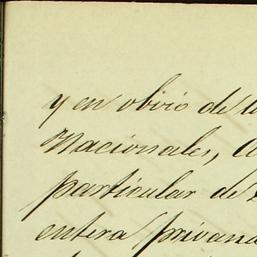 y en obvio de
Nacionales,
particular de
entera privan